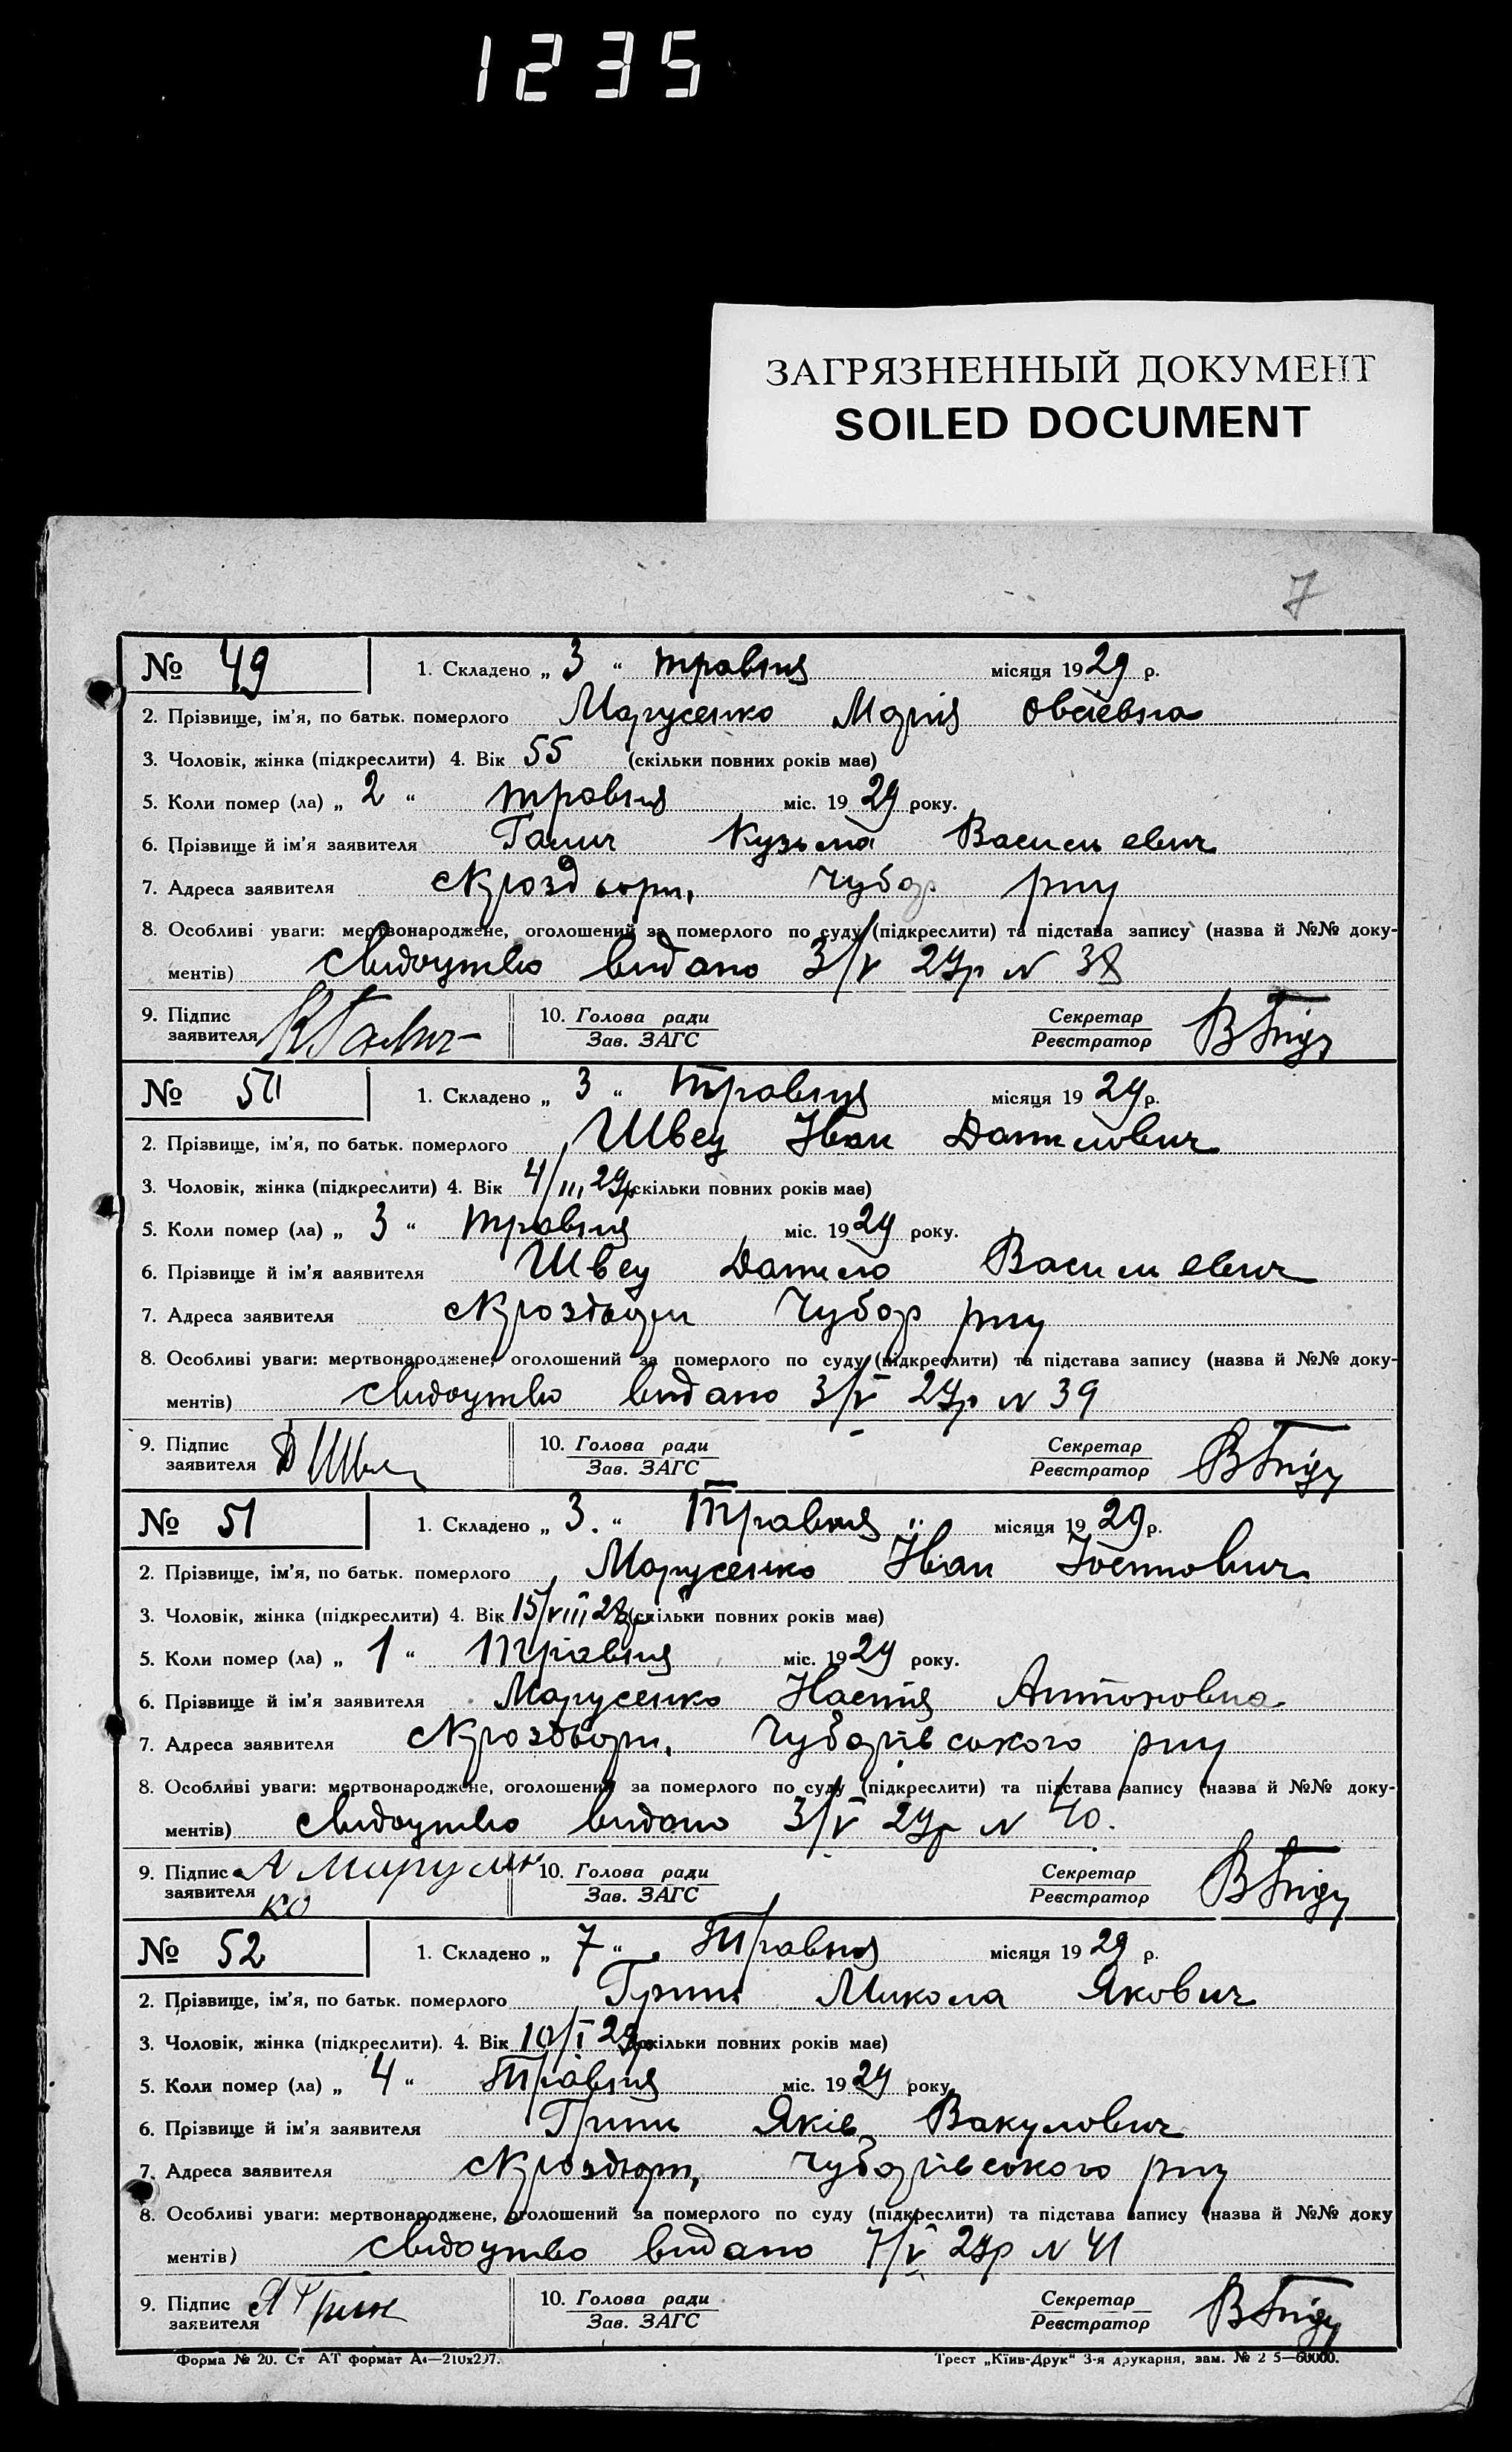 1235
ЗАГРЯЗНЕННЫЙ ДОКУМЕНТ
SOILED DOCUMENT
7
№ 49 1. Складено „ 3 “ травня місяця 1929 р.
2. Прізвище, ім'я, по батьк. померлого Марусенко Марія Овсієвна
3. Чоловік, жінка (підкреслити) 4. Вік 55 (скільки повних років має)
5. Коли помер (ла) „ 2 “ травня міс. 1929 року.
6. Прізвище й ім'я заявителя Галич Кузьма Васильевич
7. Адреса заявителя Чубар рну
8. Особливі уваги: мертвонароджене, оголошений за померлого по суду (підкреслити) та підстава запису (назва й №№ доку-
ментів) свидоцтво видано 3/V 29р N 38
9. Підпис заявителя КГалич 10. Голова ради Зав. ЗАГС Секретар Реєстратор
№ 50 1. Складено „ 3 “ травня місяця 1929 р.
2. Прізвище, ім'я, по батьк. померлого Швец Іван Данилович
3. Чоловік, жінка (підкреслити) 4. Вік 4/III 29р (скільки повних років має)
5. Коли помер (ла) „ 3 “ травня міс. 1929 року.
6. Прізвище й ім'я заявителя Швец Данило Васильевич
7. Адреса заявителя Чубар рну
8. Особливі уваги: мертвонароджене, оголошений за померлого по суду (підкреслити) та підстава запису (назва й №№ доку-
ментів) свидоцтво видано 3/V 29р N 39
9. Підпис заявителя Д Швец 10. Голова ради Зав. ЗАГС Секретар Реєстратор
№ 51 1. Складено „ 3. “ Травня місяця 1929 р.
2. Прізвище, ім'я, по батьк. померлого Марусенко Іван
3. Чоловік, жінка (підкреслити) 4. Вік 15/VIII 28р (скільки повних років має)
5. Коли помер (ла) „ 1 “ травня міс. 1929 року.
6. Прізвище й ім'я заявителя Марусенко Настя Антоновна
7. Адреса заявителя Чубарівського рну
8. Особливі уваги: мертвонароджене, оголошений за померлого по суду (підкреслити) та підстава запису (назва й №№ доку-
ментів) свидоцтво видано 3/V 29р N 40.
9. Підпис заявителя Марусенко 10. Голова ради Зав. ЗАГС Секретар Реєстратор
№ 52 1. Складено „ 7 “ Травня місяця 1929 р.
2. Прізвище, ім'я, по батьк. померлого Гринь Микола Якович
3. Чоловік, жінка (підкреслити). 4. Вік 10/I 29р (скільки повних років має)
5. Коли помер (ла) „ 4 “ Травня міс. 1929 року
6. Прізвище й ім'я заявителя Гринь Яків Вакулович
7. Адреса заявителя Чубарівського рну
8. Особливі уваги: мертвонароджене, оголошений за померлого по суду (підкреслити) та підстава запису (назва й №№ доку
ментів) свидоцтво видано 7/V 29р N 41
9. Підпис заявителя Я Гринь 10. Голова ради Зав. ЗАГС Секретар Реєстратор
Форма № 20. Ст АТ формат А4—210х297. Трест „Київ-Друк“ 3-я друкарня, зам. № 2 5—60000.